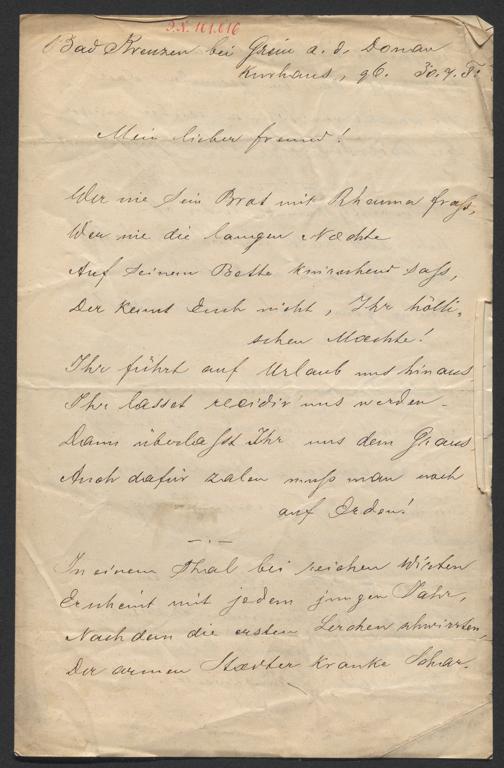 I.N. 161.616
Bad Kreuzen bei Grein a. d. Donau
Kurhaus, 96. 30.7.
Mein lieber Freund!
Wer nie sein Brot mit Rheuma frass,
Wer nie die langen Nächte
Auf seinem Bette knirschend sass,
Der kennt Euch nicht, Ihr hölli-
schen Maechte!
Ihr führt auf Urlaub uns hinaus
Ihr lasset recidiv uns werden
Dann überlasst Ihr uns dem Graus
Auch dafür zalen muss man noch
auf Erden!
In einem Thal bei reichen Wirten
Erscheint mit jedem jungen Jahr,
Nachdem die ersten Lerchen schwirrten,
Der armen Staedter kranke Schar.